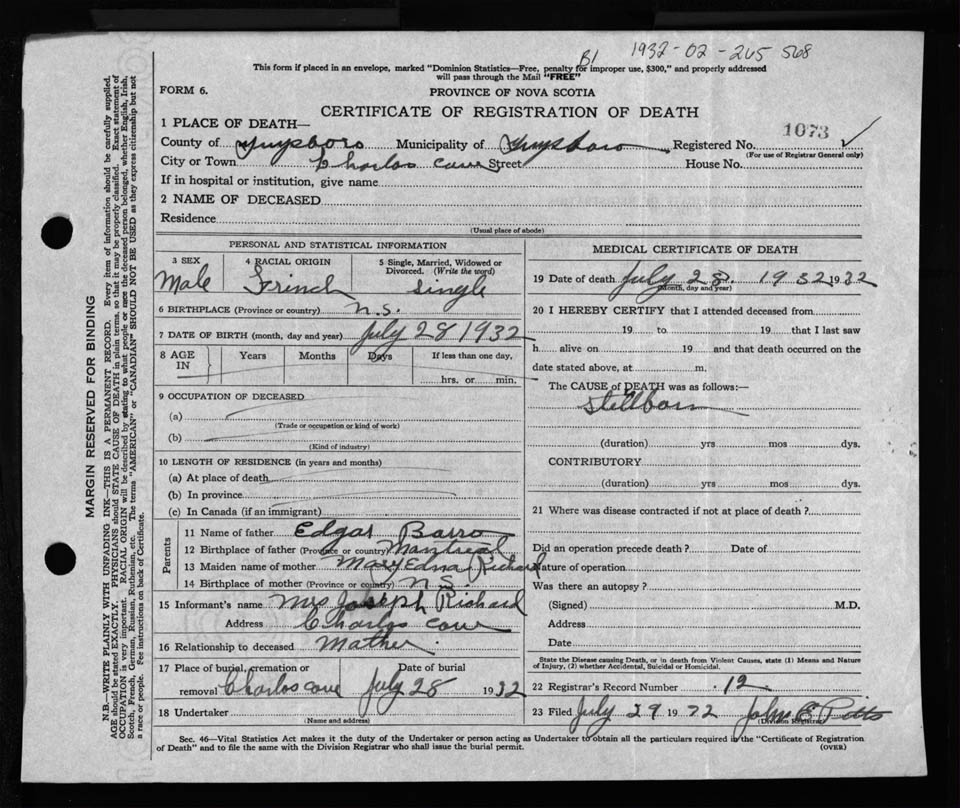 1932-02-265 568
B1
This form if placed in an envelope, marked "Dominion Statistics—Free, penalty for improper use, $300," and properly addressed
will pass through the Mail "FREE"
FORM 6.
PROVINCE OF NOVA SCOTIA
CERTIFICATE OF REGISTRATION OF DEATH
1 PLACE OF DEATH—
1073
County of Guysboro Municipality of Guysboro Registered No.
(For use of Registrar General only)
City or Town Charlos cove Street House No.
If in hospital or institution, give name
2 NAME OF DECEASED
Residence
(Usual place of abode)
PERSONAL AND STATISTICAL INFORMATION
3 SEX
Male
4 RACIAL ORIGIN
Frinch
5 Single, Married, Widowed or
Divorced. (Write the word)
Single
6 BIRTHPLACE (Province or country) N.S.
7 DATE OF BIRTH (month, day and year) July 28 1932
8 AGE
IN
Years
Months
Days
If less than one day,
hrs. or min.
9 OCCUPATION OF DECEASED
(a)
(Trade or occupation or kind of work)
(b)
(Kind of industry)
10 LENGTH OF RESIDENCE (in years and months)
(a) At place of death
(b) In province
(c) In Canada (if an immigrant)
Parents
11 Name of father Edgar Barro
12 Birthplace of father (Province or country) Mantreal
13 Maiden name of mother Mary Edna Richard
14 Birthplace of mother (Province or country) N.S.
15 Informant's name Mrs Joseph Richard
Address Charlos cove
16 Relationship to deceased Mather
17 Place of burial, cremation or
removal Charlos cove
Date of burial
July 28 1932
18 Undertaker
(Name and address)
MEDICAL CERTIFICATE OF DEATH
19 Date of death July 28. 1932 1932
(Month, day and year)
20 I HEREBY CERTIFY that I attended deceased from
19 to 19 that I last saw
h alive on 19 and that death occurred on the
date stated above, at m.
The CAUSE of DEATH was as follows:—
Stillborn
(duration) yrs mos dys.
CONTRIBUTORY
(duration) yrs mos dys.
21 Where was disease contracted if not at place of death?
Did an operation precede death? Date of
Nature of operation
Was there an autopsy?
(Signed) M.D.
Address
Date
State the Disease causing Death, or in death from Violent Causes, state (1) Means and Nature
of Injury, (2) whether Accidental, Suicidal or Homicidal.
22 Registrar's Record Number 12
23 Filed July 29 1932 John E Pitts
(Division Registrar)
Sec. 46—Vital Statistics Act makes it the duty of the Undertaker or person acting as Undertaker to obtain all the particulars required in the "Certificate of Registration
of Death" and to file the same with the Division Registrar who shall issue the burial permit.
(OVER)
MARGIN RESERVED FOR BINDING
N.B.—WRITE PLAINLY WITH UNFADING INK—THIS IS A PERMANENT RECORD. Every item of information should be carefully supplied.
AGE should be stated EXACTLY. PHYSICIANS should STATE CAUSE OF DEATH in plain terms, so that it may be properly classified. Exact statement of
OCCUPATION is very important. RACIAL ORIGIN will be described by stating to what people or race the deceased person belonged, whether English, Irish,
Scotch, French, German, Russian, Ruthenian, etc. The terms "AMERICAN" or "CANADIAN" SHOULD NOT BE USED as they express citizenship but not
a race or people. See instructions on back of Certificate.